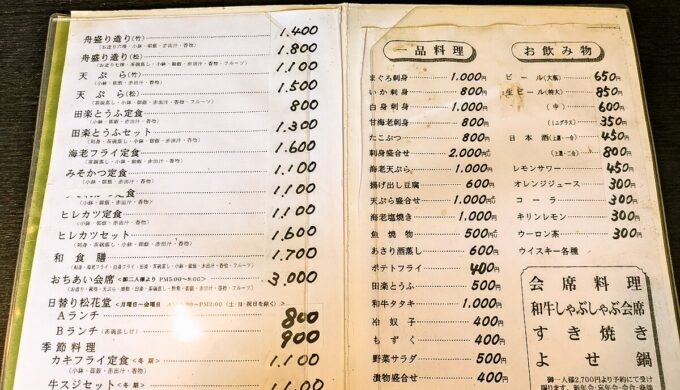 舟盛り造り(竹) 1.400
(お造り六種・小鉢・御飯・赤出汁・香物)
舟盛り造り(松) 1.800
(お造り七種・茶碗蒸し・小鉢・御飯・赤出汁・香物・フルーツ)
天ぷら(竹) 1.100
(小鉢・御飯・赤出汁・香物)
天ぷら(松) 1.500
(茶碗蒸し・小鉢・御飯・赤出汁・香物・フルーツ)
田楽とうふ定食 800
(小鉢・御飯・赤出汁・香物)
田楽とうふセット 1.300
(刺身・茶碗蒸し・小鉢・御飯・赤出汁・香物)
海老フライ定食 1.600
(小鉢・御飯・赤出汁・香物)
みそかつ定食 1.100
(小鉢・御飯・赤出汁・香物)
1.100
(小鉢・御飯・赤出汁・香物)
ヒレカツ定食 1.100
(小鉢・御飯・赤出汁・香物)
ヒレカツセット 1.600
(刺身・茶碗蒸し・小鉢・御飯・赤出汁・香物)
和食膳 1.700
おちあい会席 3.000
日替り松花堂 <月曜日~金曜日
Aランチ 800
Bランチ(茶碗蒸し付) 900
季節料理
カキフライ定食<冬期> 1.100
(小鉢・御飯・赤出汁・香物)
牛スジセット<冬期> 1.100
一品料理
まぐろ刺身 1.000円
いか刺身 800円
白身刺身 1.000円
甘海老刺身 800円
たこぶつ 800円
刺身盛合せ 2.000円
海老天ぷら 1.000円
揚げ出し豆腐 600円
天ぷら盛合せ 1.000円
海老塩焼き 1.000円
魚焼物 500円
あさり酒蒸し 600円
ポテトフライ 400円
田楽とうふ 500円
和牛タタキ 1.000円
冷奴子 400円
もずく 400円
野菜サラダ 500円
漬物盛合せ 400円
お飲み物
ビール(大瓶) 650円
生ビール(特大) 850円
(中) 600円
(ミニグラス) 350円
日本酒(上選・一合) 450円
(上選・二合) 800円
レモンサワー 450円
オレンジジュース 300円
コーラ 300円
キリンレモン 300円
ウーロン茶 300円
ウイスキー各種
会席料理
和牛しゃぶしゃぶ会席
すき焼き
よせ鍋
御一人様2,700円より予約にて受け